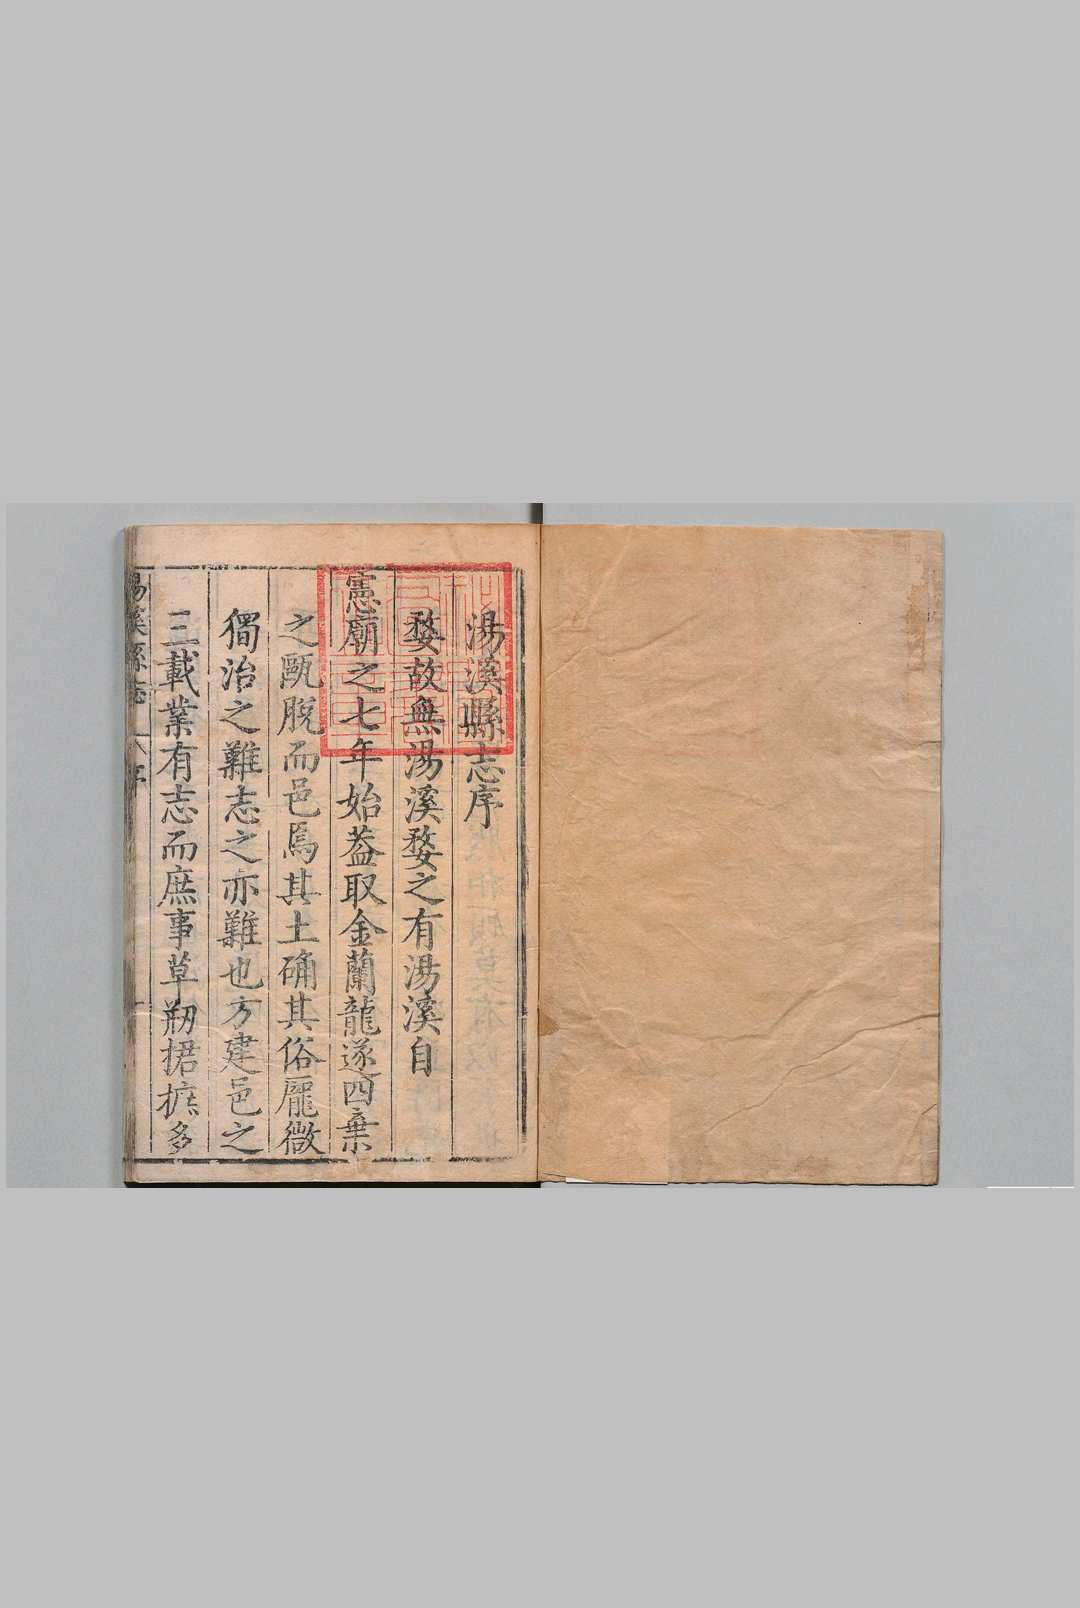 湯溪縣志序
婺故無湯溪婺之有湯溪自
憲廟之七年始葢取金蘭龍遂四棄
之甌脫而邑焉其土确其俗龐微
獨治之難志之亦難也方建邑之
三載業有志而庶事草剏捃摭多
湯溪縣志 序